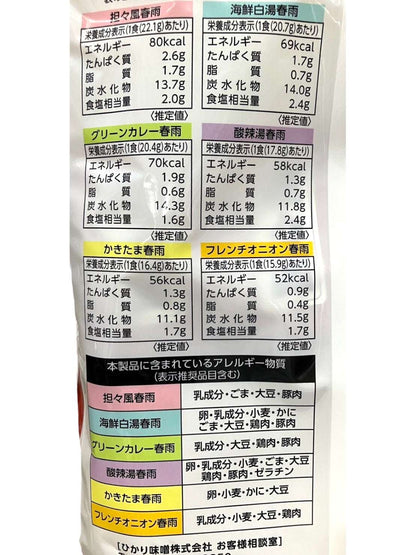 担々風春雨
栄養成分表示(1食(22.1g)あたり)
エネルギー 80kcal
たんぱく質 2.6g
脂質 1.7g
炭水化物 13.7g
食塩相当量 2.0g
〈推定値〉
海鮮白湯春雨
栄養成分表示(1食(20.7g)あたり)
エネルギー 69kcal
たんぱく質 1.7g
脂質 0.7g
炭水化物 14.0g
食塩相当量 2.4g
〈推定値〉
グリーンカレー春雨
栄養成分表示(1食(20.4g)あたり)
エネルギー 70kcal
たんぱく質 1.9g
脂質 0.6g
炭水化物 14.3g
食塩相当量 1.6g
〈推定値〉
酸辣湯春雨
栄養成分表示(1食(17.8g)あたり)
エネルギー 58kcal
たんぱく質 1.3g
脂質 0.7g
炭水化物 11.8g
食塩相当量 2.4g
〈推定値〉
かきたま春雨
栄養成分表示(1食(16.4g)あたり)
エネルギー 56kcal
たんぱく質 1.3g
脂質 0.8g
炭水化物 11.1g
食塩相当量 1.7g
〈推定値〉
フレンチオニオン春雨
栄養成分表示(1食(15.9g)あたり)
エネルギー 52kcal
たんぱく質 0.9g
脂質 0.4g
炭水化物 11.5g
食塩相当量 1.7g
〈推定値〉
本製品に含まれているアレルギー物質
(表示推奨品目含む)
担々風春雨 乳成分・ごま・大豆・豚肉
海鮮白湯春雨 卵・乳成分・小麦・かに
ごま・大豆・鶏肉・豚肉
グリーンカレー春雨 乳成分・大豆・鶏肉・豚肉
酸辣湯春雨 卵・乳成分・小麦・ごま・大豆
鶏肉・豚肉・ゼラチン
かきたま春雨 卵・小麦・かに・大豆
フレンチオニオン春雨 乳成分・小麦・大豆・鶏肉
【ひかり味噌株式会社 お客様相談室】